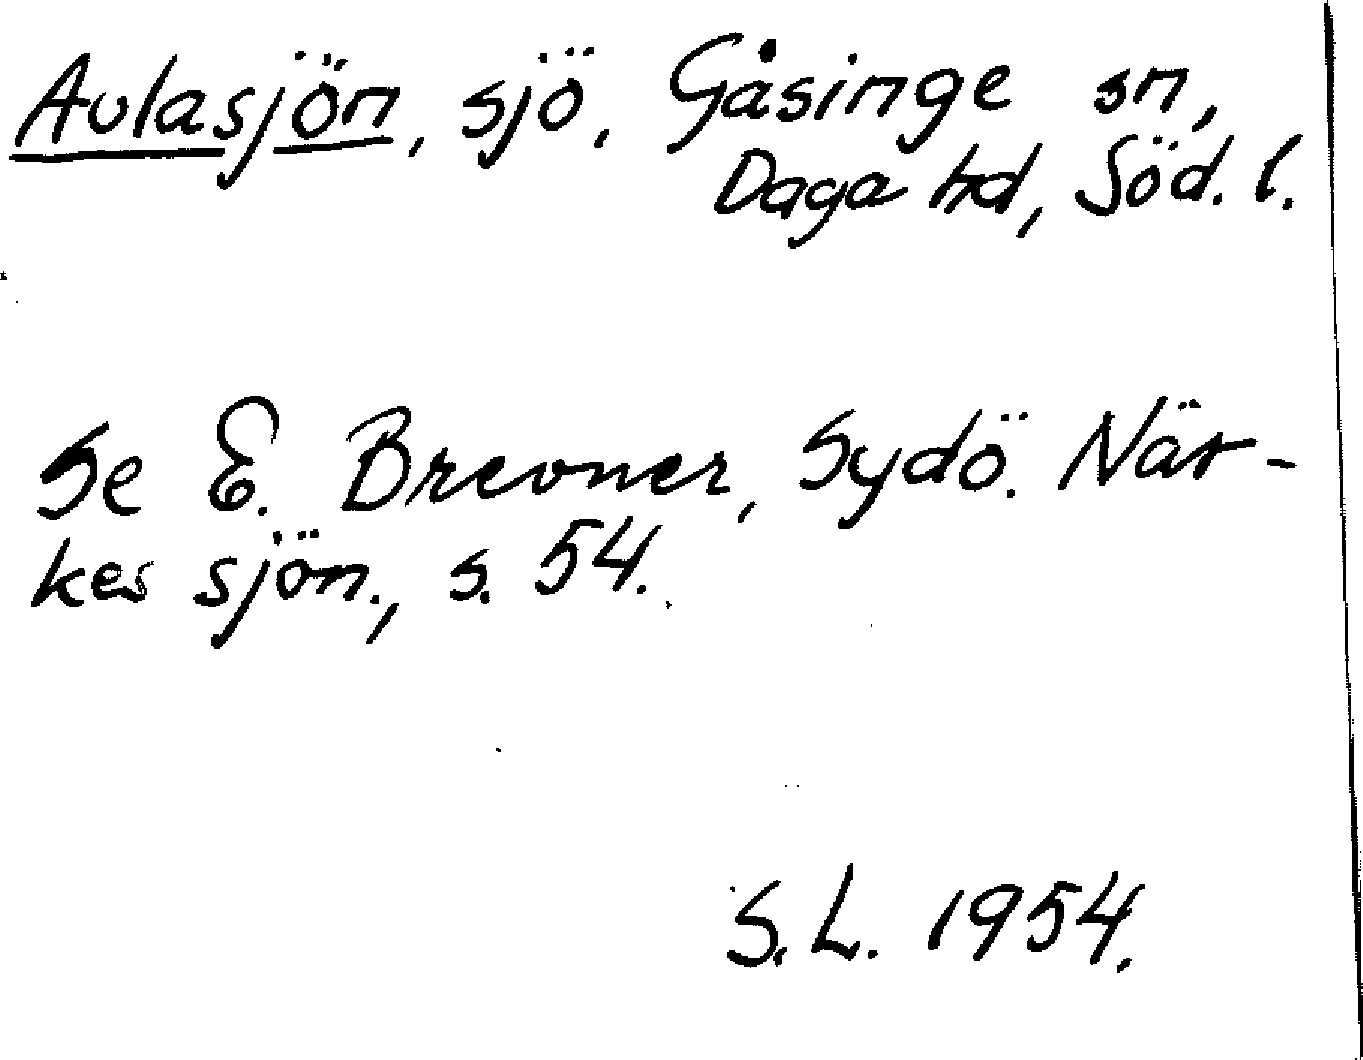 Aulasjön, sjö, Gåsinge sn,
Daga hd, Söd. l.
Se E. Brevner, Sydö. När-
kes sjön., s. 54.
S.L. 1954.